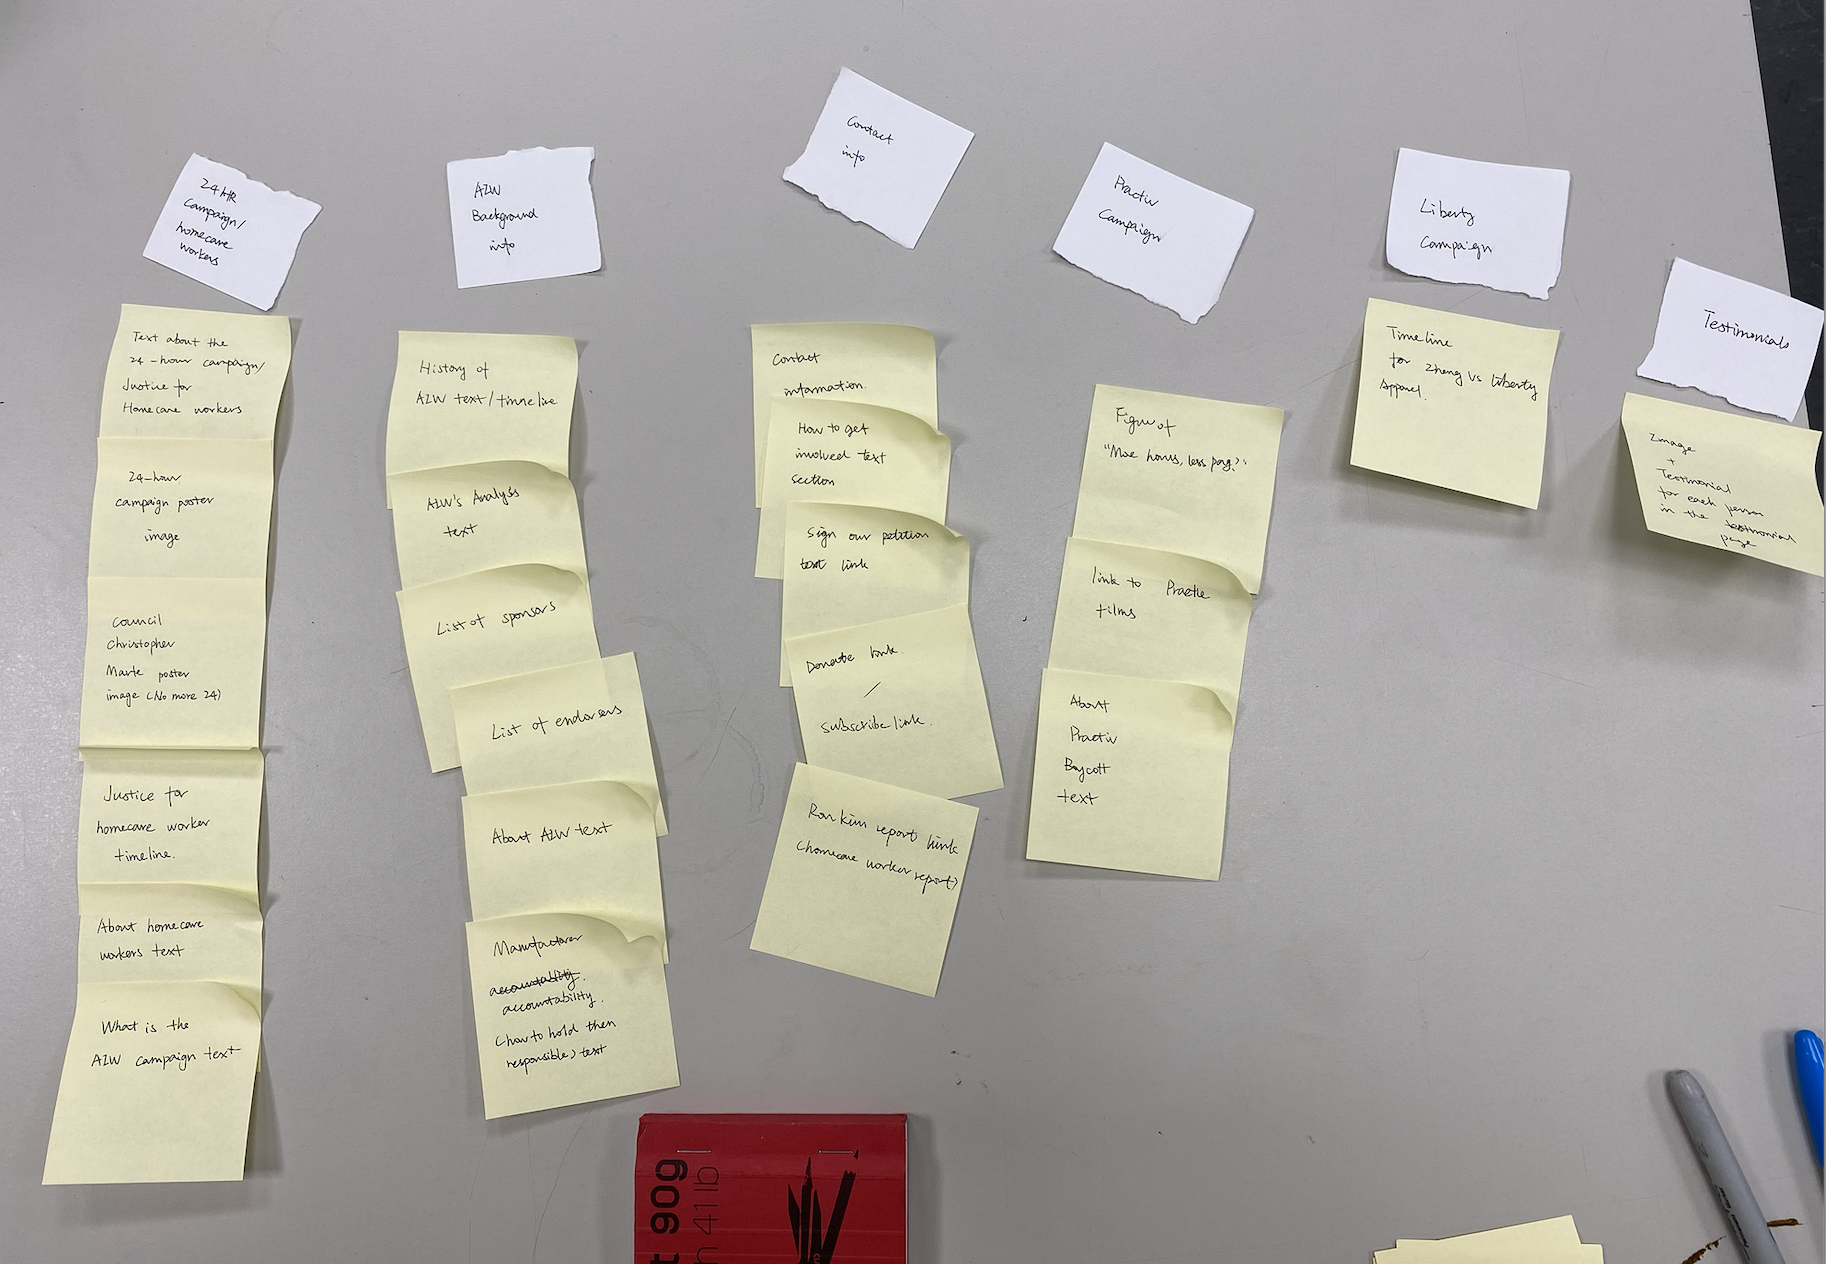 24 HR
Campaign/
homecare
workers
Text about the
24-hour campaign/
Justice for
Homecare workers
24-hour
campaign poster
image
Council
Christopher
Marte poster
image (No more 24)
Justice for
homecare worker
timeline.
About homecare
workers text
What is the
AIW campaign text
AIW
Background
info
History of
AIW text/timeline
AIW's Analysis
text
List of sponsors
List of endorsers
About AIW text
Manufacturer
accountability.
accountability.
(how to hold then
responsible) text
Contact
info
Contact
information.
How to get
involved text
section
Sign our petition
text link
Donate link.
/
Subscribe link.
Ron Kim report link
(homecare worker report)
Practiv
Campaign
Figure of
"More hours, less pay?"
link to Practie
films
About
Practiv
Boycott
text
Liberty
Campaign
Timeline
for Zheng vs Liberty
Apparel.
Testimonials
Image
+
Testimonial
for each person
in the testimonial
page
t 90g
n 41 lb